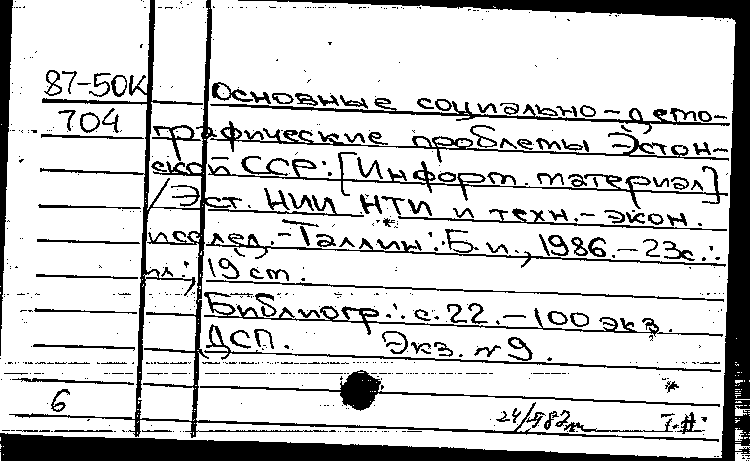 87-50К
704
Основные социально-демо-
графические проблемы Эстон-
ской ССР: [Информ. материал]
/Эст. НИИ НТИ и техн.-экон.
исслед. - Таллин: Б.и., 1986. - 23с.:
ил.; 19 ст.
Библиогр.: с. 22. - 100 экз.
ДСП. Экз. №9.
6
Т.Н.